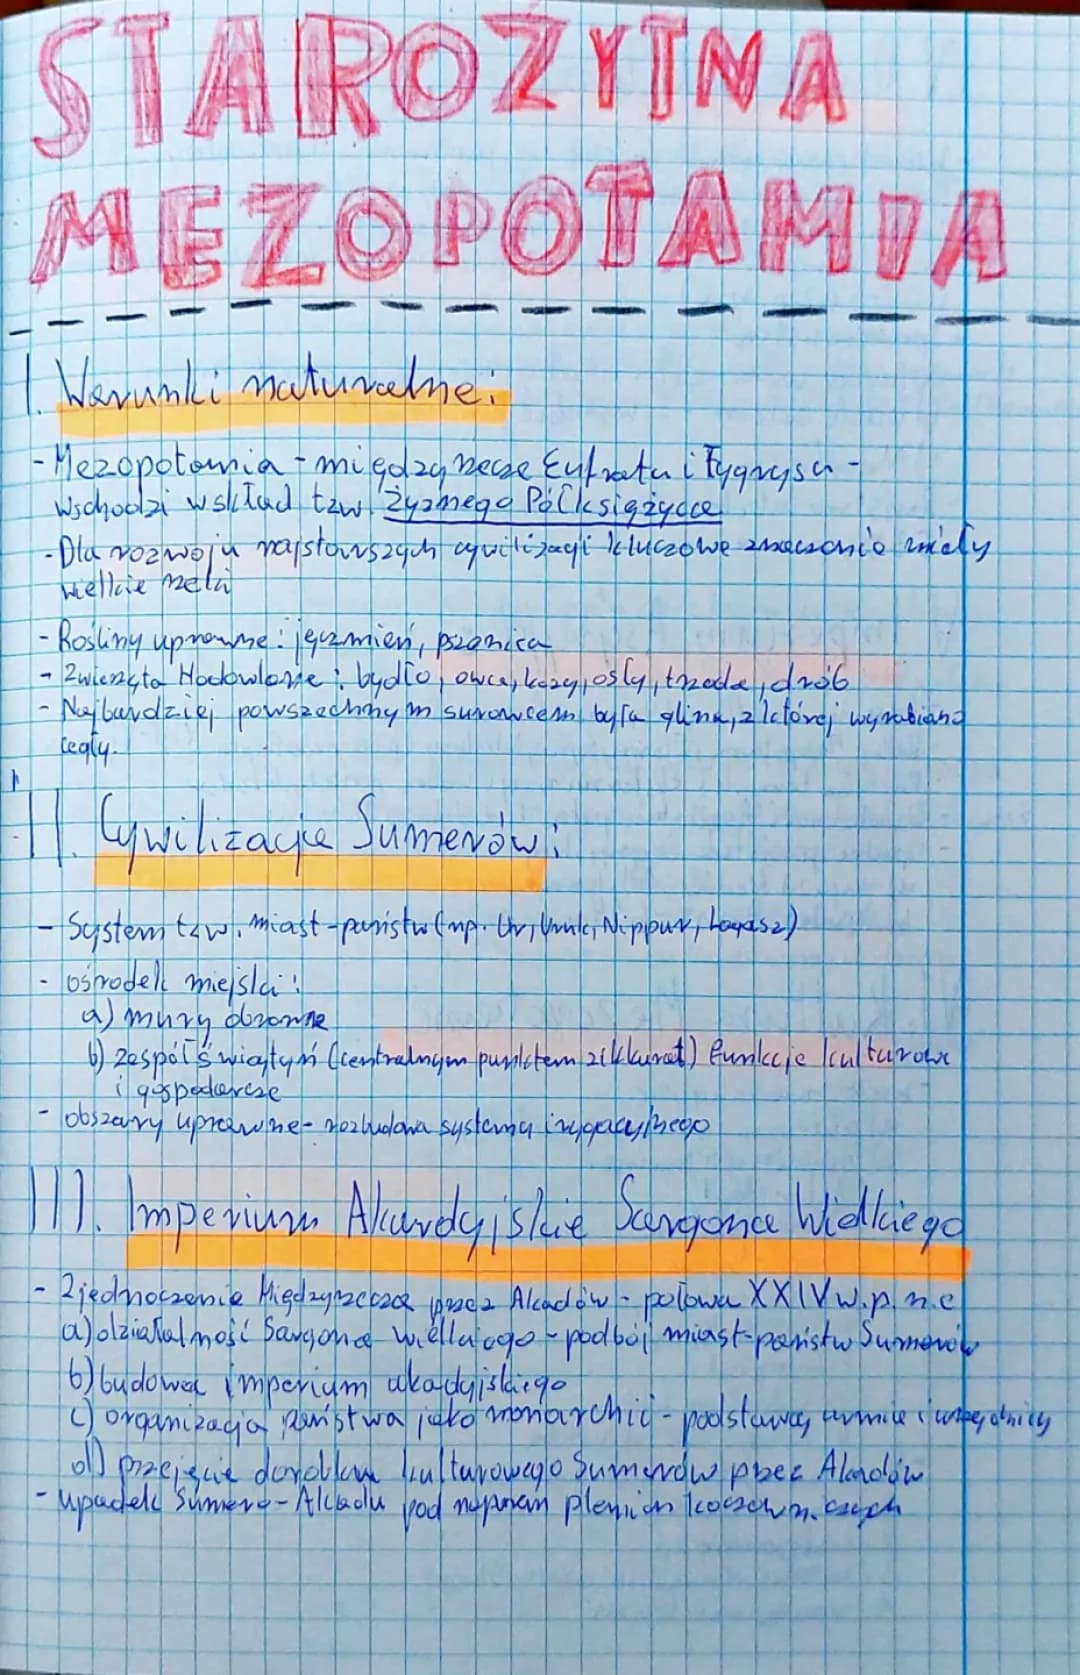 STAROŻYTNA
MEZOPOTAMIA
I. Warunki naturalne:
- Mezopotamia - międzyrzecze Eufratu i Tygrysu -
wschodzi w skład tzw. Żyznego Półksiężyca
- Dla rozwoju najstarszych cywilizacji kluczowe znaczenie miały
wielkie rzeki
- Rośliny uprawne: jęczmień, pszenica
- Zwierzęta Hodowlane: bydło, owce, kozy, osły, trzoda, drób
- Najbardziej powszechnym surowcem była glina, z której wyrabiano
cegły.
II. Cywilizacja Sumerów:
- System tzw. miast-państw (np. Ur, Uruk, Nippur, Lagasz)
- ośrodek miejski:
a) mury obronne
b) zespół świątyń (centralnym punktem zikkurat) funkcje kulturowe
i gospodarcze
- obszary uprawne - rozbudowa systemu irygacyjnego
III. Imperium Akadyjskie Sargona Wielkiego
- Zjednoczenie Międzyrzecza przez Akadów - połowa XXIV w. p. n. e
a) działalność Sargona Wielkiego - podbój miast-państw Sumerów
b) budowa imperium akadyjskiego
c) organizacja państwa jako monarchii - podstawą armia i urzędnicy
d) przejęcie dorobku kulturowego Sumerów przez Akadów
- upadek Sumero-Akadu pod naporem plemion koczowniczych